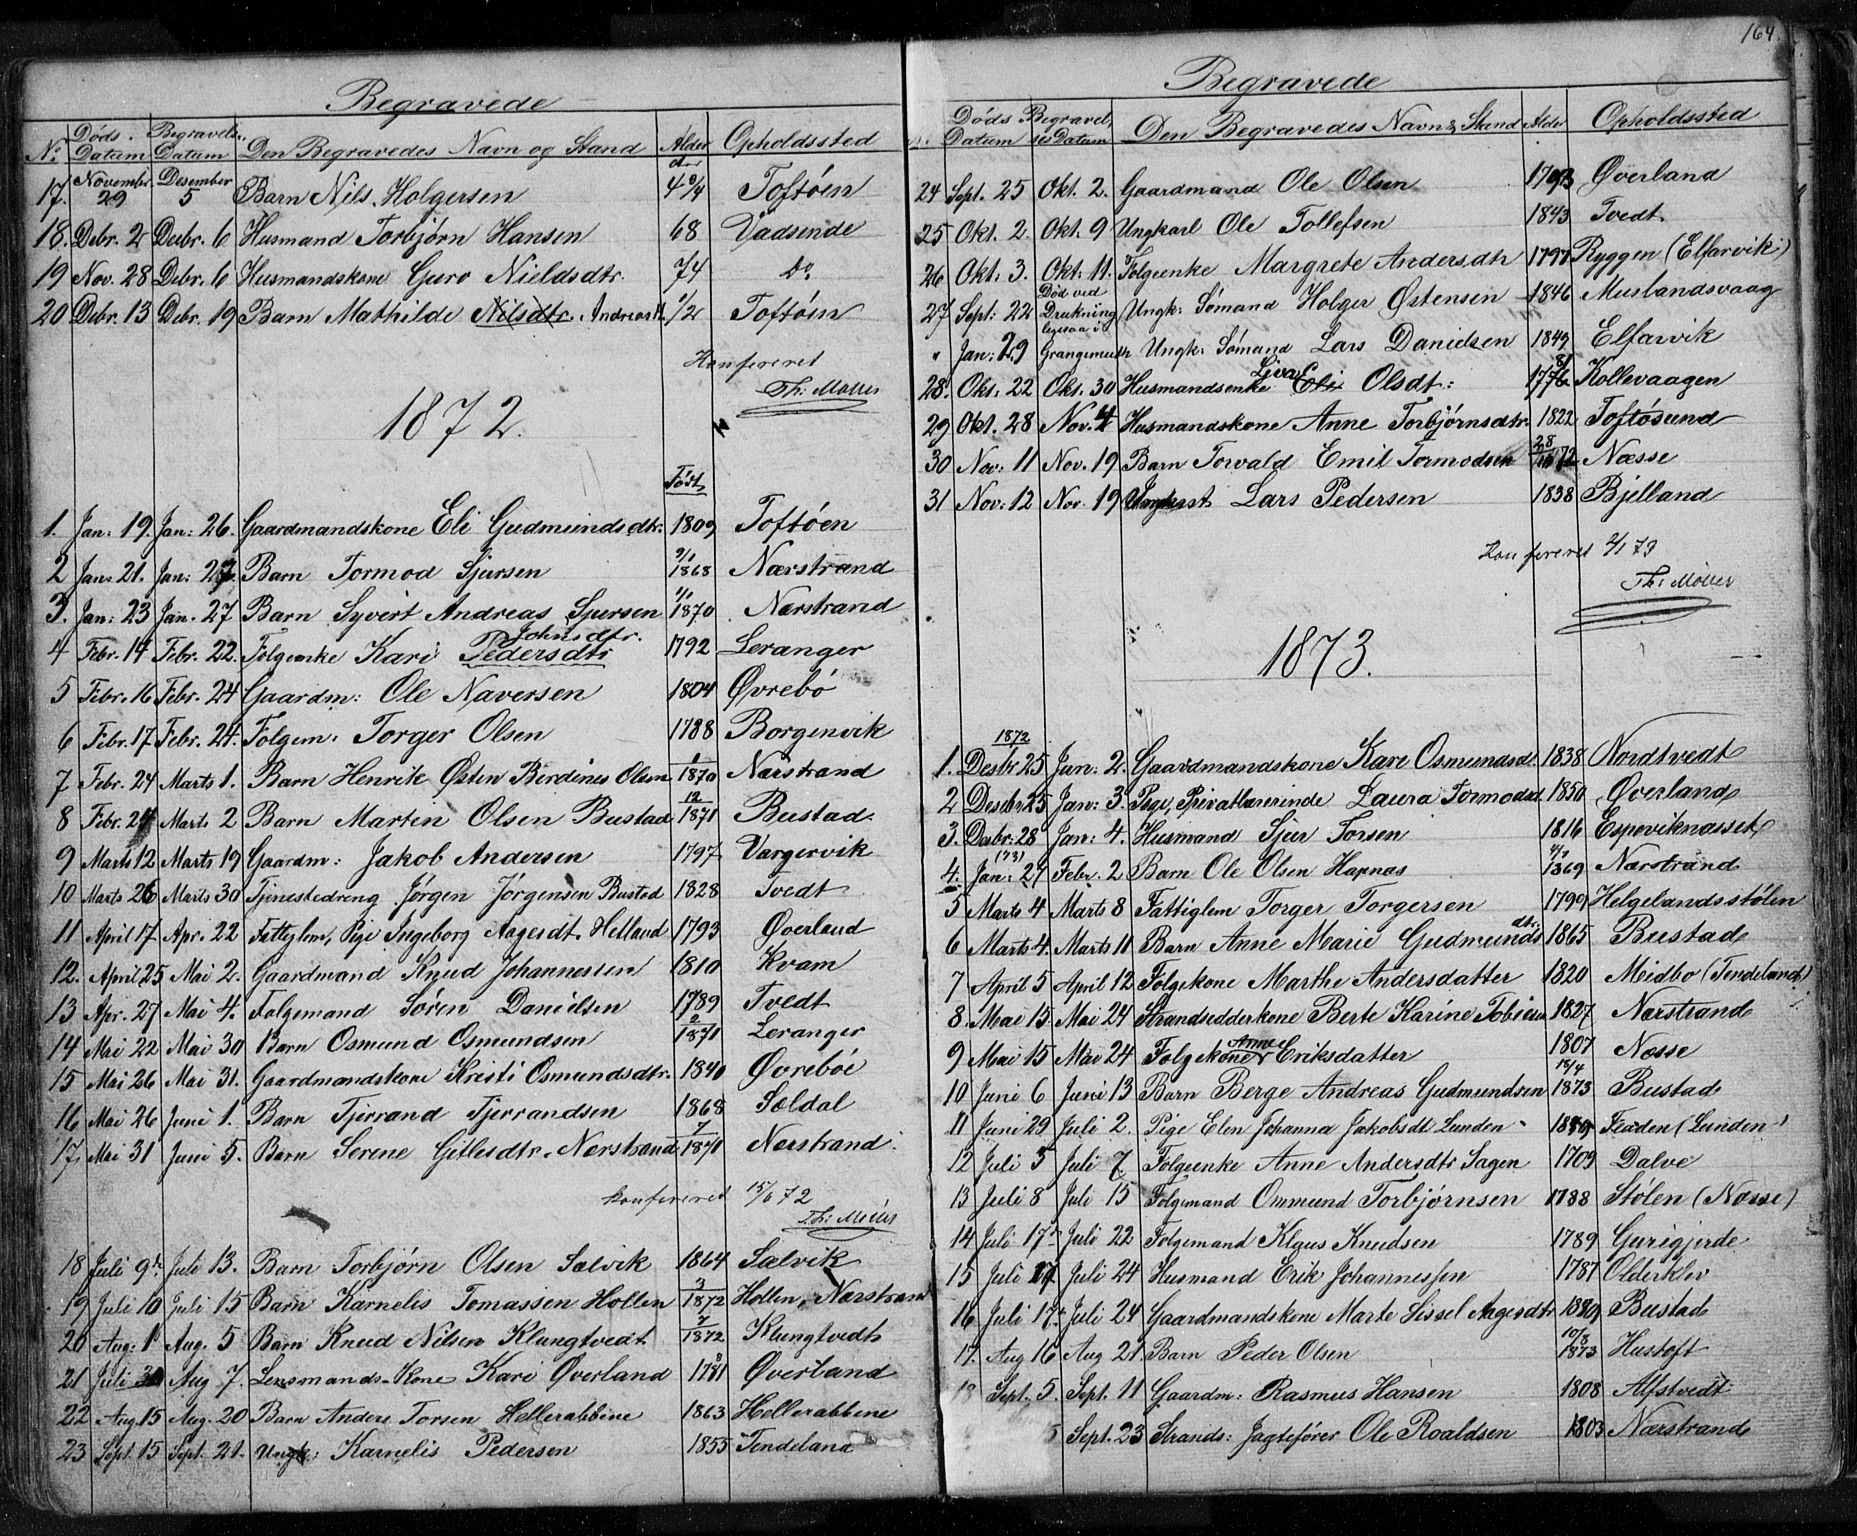 Begravede
No. Døds Datum Begravels. Datum Den Begravedes Navn og Stand Alder Opholdssted
17. November 29 Desember 5 Barn Nils Holgersen 4 Toftøen
18. Debr. 2 Decbr. 6 Husmand Torbjørn Hansen 68 Vadsende
19 Nov. 28 Debr. 6 Husmandskone Guro Nieldsdtr. 74 do
20 Debr. 13 Debr. 19 Barn Mathilde Nilsdtr. Andreasd. 1/2 Toftøen
Konfereret
Th: Møller
1872.
Født
1. Jan: 19. Jan: 26. Gaardmandskone Eli Gudmundsdtr. 1809 Toftøen
2 Jan. 21. Jan: 27. Barn Tormod Sjursen 9/1 1868 Nærstrand
3. Jan: 23 Jan. 27 Barn Syvert Andreas Sjursen 1/1 1870 Nærstrand
4 Febr. 14 Febr. 22. Folgenke Kari Pedersdtr Johnsdtr. 1792 Leranger
5 Febr. 16 Febr. 24 Gaardm: Ole Naversen 1804 Øvrebø
6 Febr. 17 Febr. 24. Folgem. Torger Olsen 1788 Borgenvik
7 Febr. 24 Marts 1. Barn Henrik Østen Berdines Olsen 1/1870 Nærstrand
8 Febr. 24 Marts 2 Barn Martin Olsen Bustad 12/1871 Bustad
9 Marts 12 Marts 19 Gaardm: Jakob Andersen 1797 Vargervik
10 Marts 26 Marts 30 Tjenestedreng Jørgen Jørgensen Bustad 1828 Tvedt
11 April 17 Apr. 22 Fattiglem, Pige Ingeborg Aagesdt. Helland 1793 Øverland
12. April 25 Mai 2. Gaardmand Knud Johannessen 1810 Kvam
13 Apr. 27 Mai 4. Folgemand Søren Danielsen 1789 Tvedt
14 Mai 22 Mai 30 Barn Osmund Osmundsen 2/1871 Leranger
15 Mai 26 Mai 31. Gaardmandskone Kristi Osmundsdtr. 1840 Øvrebøe
16 Mai 26 Juni 1. Barn Tjerrand Tjerrandsen 1868 Sældal
17. Mai 31 Juni 5. Barn Serene Gitlesdtr. Nerstrand 7/1871 Nerstrand
Konfereret 15/6 72
Th: Møller
18 Juli 9de Juli 13. Barn Torbjørn Olsen Salvik 1864 Salvik
19 Juli 10 Juli 15 Barn Karnelis Tomassen Hollen 3/1872 Hollen, Nærstrand
20 Aug: 1 Aug. 5 Barn Knud Nilsen Klungtvedt 7/1872 Klungtvedt
21 Juli Aug 7. Lensmands-Kone Kari Øverland Øverland
22 Aug. 15 Aug. 20 Barn Anders Torsen Hellerabbene 1863 Hellerabbene
23 Sept. 15 Sept. 21. Ungk: Karnelis Pedersen 1855 Tendeland
164.
Begravede
Døds Datum Begravelses Datum Den Begravedes Navn & Stand Alder Opholdssted
24 Sept. 25 Okt. 2. Gaardmand Ole Olsen Øverland
25 Okt. 2 Okt. 9 Ungkarl Ole Tollefsen 1843 Tvedt
26 Okt. 3. Okt. 11. Folgeenke Margrete Andersdtr 1797 Ryggen (Elfarvik)
27 Sept: 22 Død ved Drukning Ungk: Sømand Holger Østensen 1846 Muslandsvaag
" Jan: 29 ligesaa i Grangemuth Ungk: Sømand Lars Danielsen 1849 Elfarvik
28. Okt. 22 Okt. 30 Husmandsenke Eli Olsdt: Kollevaagen
29 Okt. 28 Nov. 4 Husmandskone Anne Torbjørnsdtr. 1822 Toftøsund
30 Nov: 11 Nov. 19 Barn Torvald Emil Tormodsen 28/ 72 Næsse
31 Nov: 12 Nov. 19 Lars Pedersen 1838 Bjelland
Konfereret 2/1 73
Th: Møller
1873.
1872
1. Desbr 25 Jan: 2. Gaardmandskone Kari Osmundsd. 1838 Nordtvedt
2 Desebr 25 Jan: 3. Pige, Privatlærerinde Laura Tormodsd 1850 Øverland
3. Desbr: 28 Jan: 4. Husmand Sjur Torsen 1816 Espeviknasset
4. (73) Jan: 27 Febr. 2 Barn Ole Olsen Hapnas 4/1 1869 Nærstrand
5 Marts 4 Marts 8 Fattiglem Torger Torgersen 1790 Helgelandsstølen
6 Marts 4. Marts 11 Barn Anne Marie Gudmundsdtr. 1865 Bustad
7 April 5 April 12 Folgekone Marthe Andersdatter 1820 Midbø (Tendeland)
8. Mai 15 Mai 24 Strandsedderkone Berte Karine Tobias 1827 Nærstrand
9 Mai 15 Mai 24 Folgekone Anne Eriksdatter 1807 Næsse
10 Juni 6 Juni 13 Barn Berge Andreas Gudmundsen 18/4 1873 Bustad
11 Juni 29 Juli 2. Pige Elen Johanna Jakobsdt Lunden Fladen (Lunden)
12 Juli 5 Juli 7 Folgeenke Anne Andersdtr Sagen 1709 Dalve
13 Juli 8 Juli 15 Folgemand Ommund Torbjørnsen 1788 Stølen (Næsse)
14 Juli 17de Juli 22 Folgemand Klaus Knudsen 1789 Gurigjerde
15 Juli 17 Juli 24 Husmand Erik Johannessen 1787 Olderklev
16 Juli 17de Juli 24 Gaardmandskone Marte Sissel Aagesdtr Bustad
17. Aug 16 Aug 21 Barn Peder Olsen 10/8 1873 Hustoft
18 Sept. 5. Sept. 11 Gaardm: Rasmus Hansen 1808 Alfstvedt
Sept. 23 Strands: Jagtefører Ole Roaldsen 1803 Nærstrand